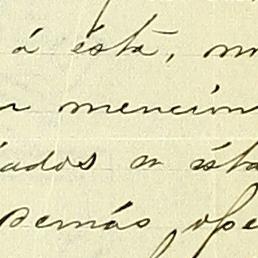 á ésta, 
mencion
ados a ésta
demás ope